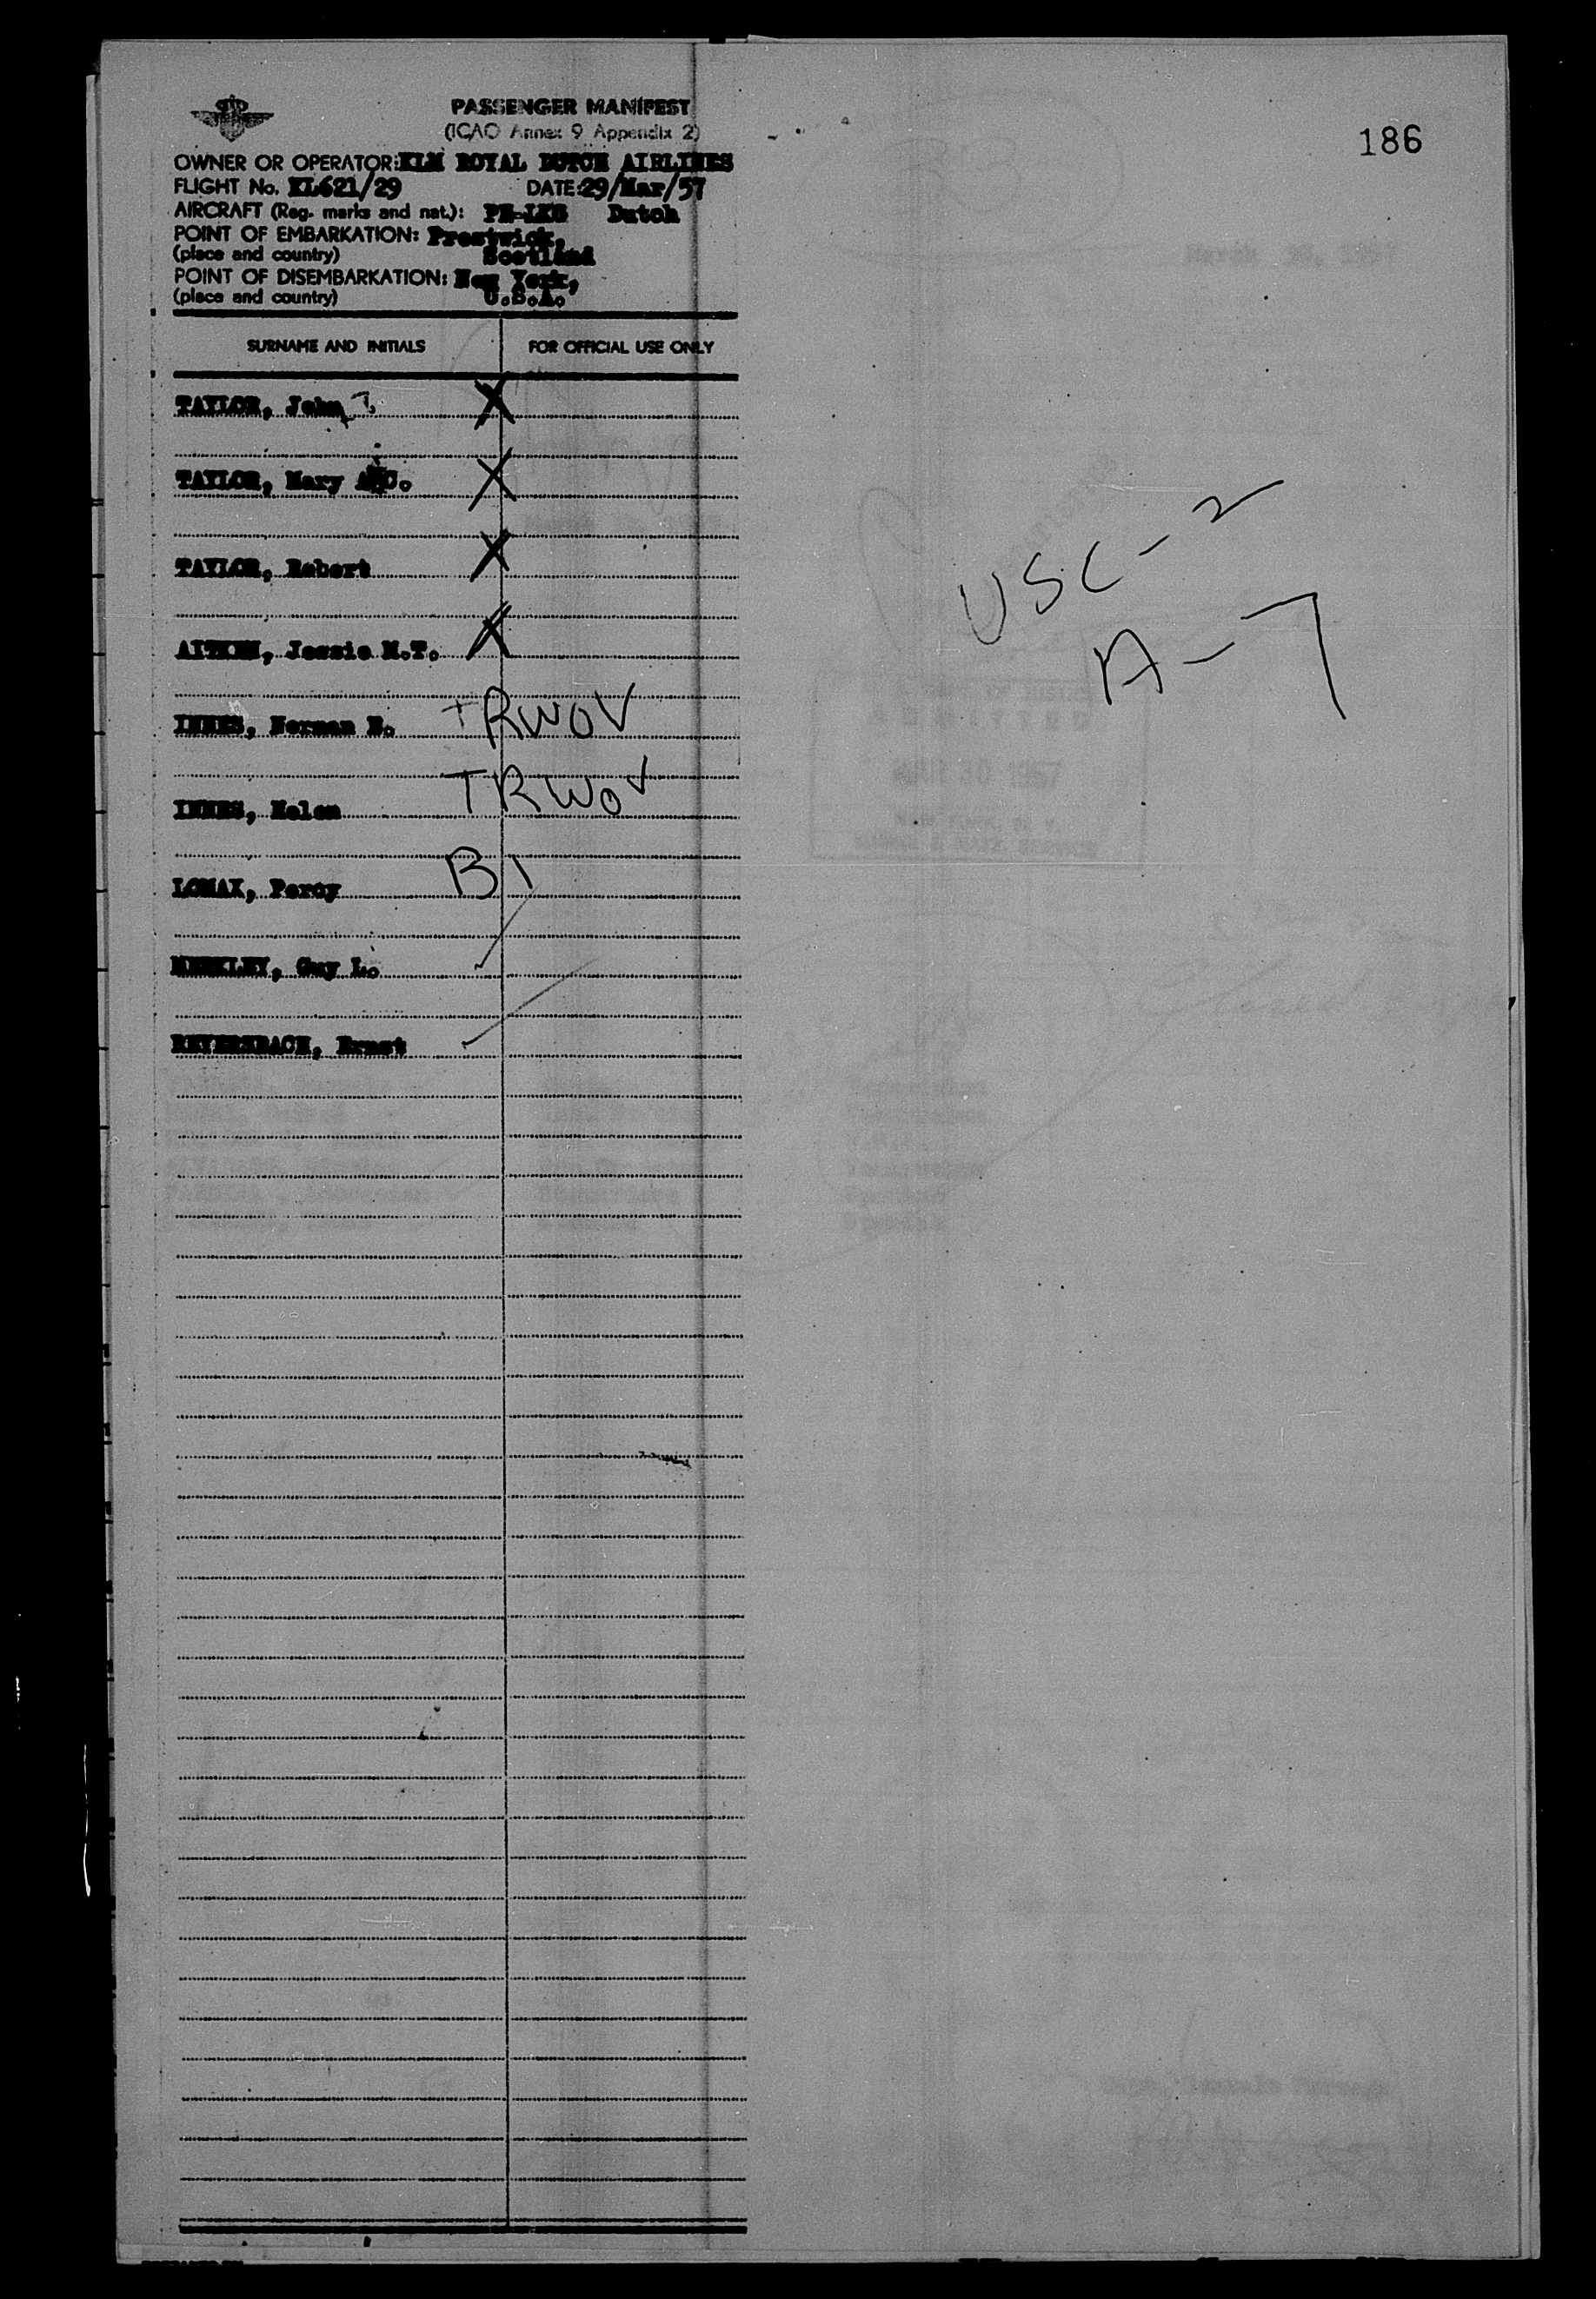 186
PASSENGER MANIFEST
(ICAO Annex 9 Appendix 2)
OWNER OR OPERATOR: KLM ROYAL DUTCH AIRLINES
FLIGHT No. KL621/29 DATE: 29/Mar/57
AIRCRAFT (Reg. marks and nat.): Dutch
POINT OF EMBARKATION: Prestwick,
(place and country) Scotland
POINT OF DISEMBARKATION: New York,
(place and country) U.S.A.
SURNAME AND INITIALS FOR OFFICIAL USE ONLY
TAYLOR, John X
TAYLOR, Mary X
TAYLOR, Robert X
AITKEN, Jessie M.T. X
INNES, Norman B. TRWOV
INNES, Helen TRWOV
LOMAX, Percy B1
MERKLEY, Guy L.
BEYERSBACH, Ernst
USC-2
A-7
MAR 30 1957